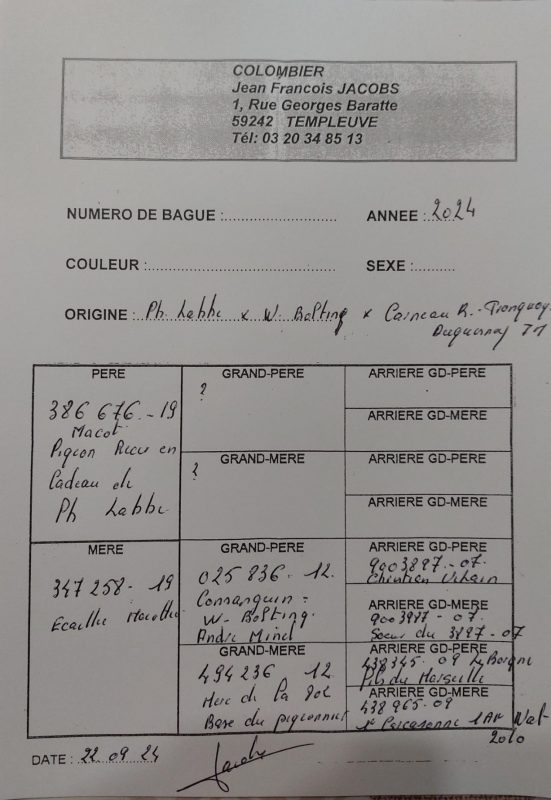 COLOMBIER
Jean Francois JACOBS
1, Rue Georges Baratte
59242 TEMPLEUVE
Tél: 03 20 34 85 13
NUMERO DE BAGUE :
ANNEE : 2024
COULEUR :
SEXE :
ORIGINE : Ph Labbe x W. Bolting x Casneau R.
PERE
386 676 - 19
Macot
Pigeon Recu en
Cadeau de
Ph Labbe
GRAND-PERE
?
ARRIERE GD-PERE
ARRIERE GD-MERE
GRAND-MERE
?
ARRIERE GD-PERE
ARRIERE GD-MERE
MERE
347 258 - 19
Ecaillée
GRAND-PERE
025 836 - 12.
Consanguin =
W. Bolting.
André
ARRIERE GD-PERE
9003897 - 07.
Christian
ARRIERE GD-MERE
9003987 - 07.
Soeur du 3897 - 07
GRAND-MERE
494 236 12
Mere de la
Base du pigeonnier
ARRIERE GD-PERE
438345 - 09
Fils du Marseille
ARRIERE GD-MERE
438 965 - 09
1er 1 AN Nat
2010
DATE : 22.09.24